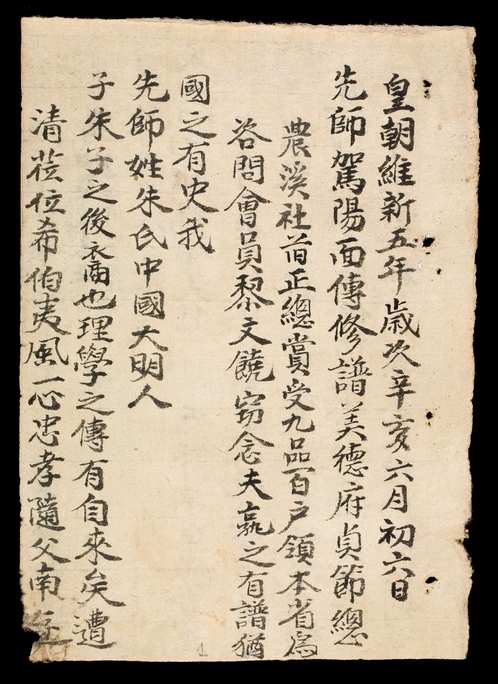 皇朝維新五年歲次辛亥六月初六日
先師駕陽面傳修譜美德府貞節總
農溪社首正總賞受九品百戶領本省爲
咨問會員黎文饒窃念夫家之有譜猶
國之有史我
先師姓朱氏中國大明人
子朱子之後裔也理學之傳有自來矣遭
清莅位希伯夷風一心忠孝隨父南
1